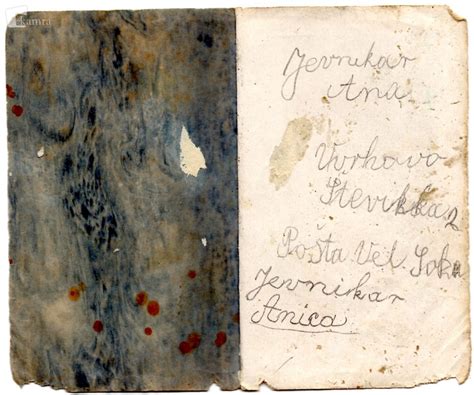 kamra
Jevnikar
Ana
Vrhovo
Številka 2
Pošta Vel. Loka
Jevnikar
Anica.